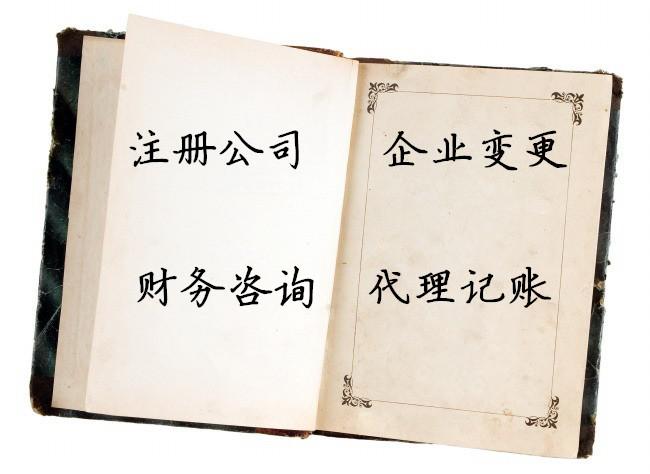 注册公司
财务咨询
企业变更
代理记账